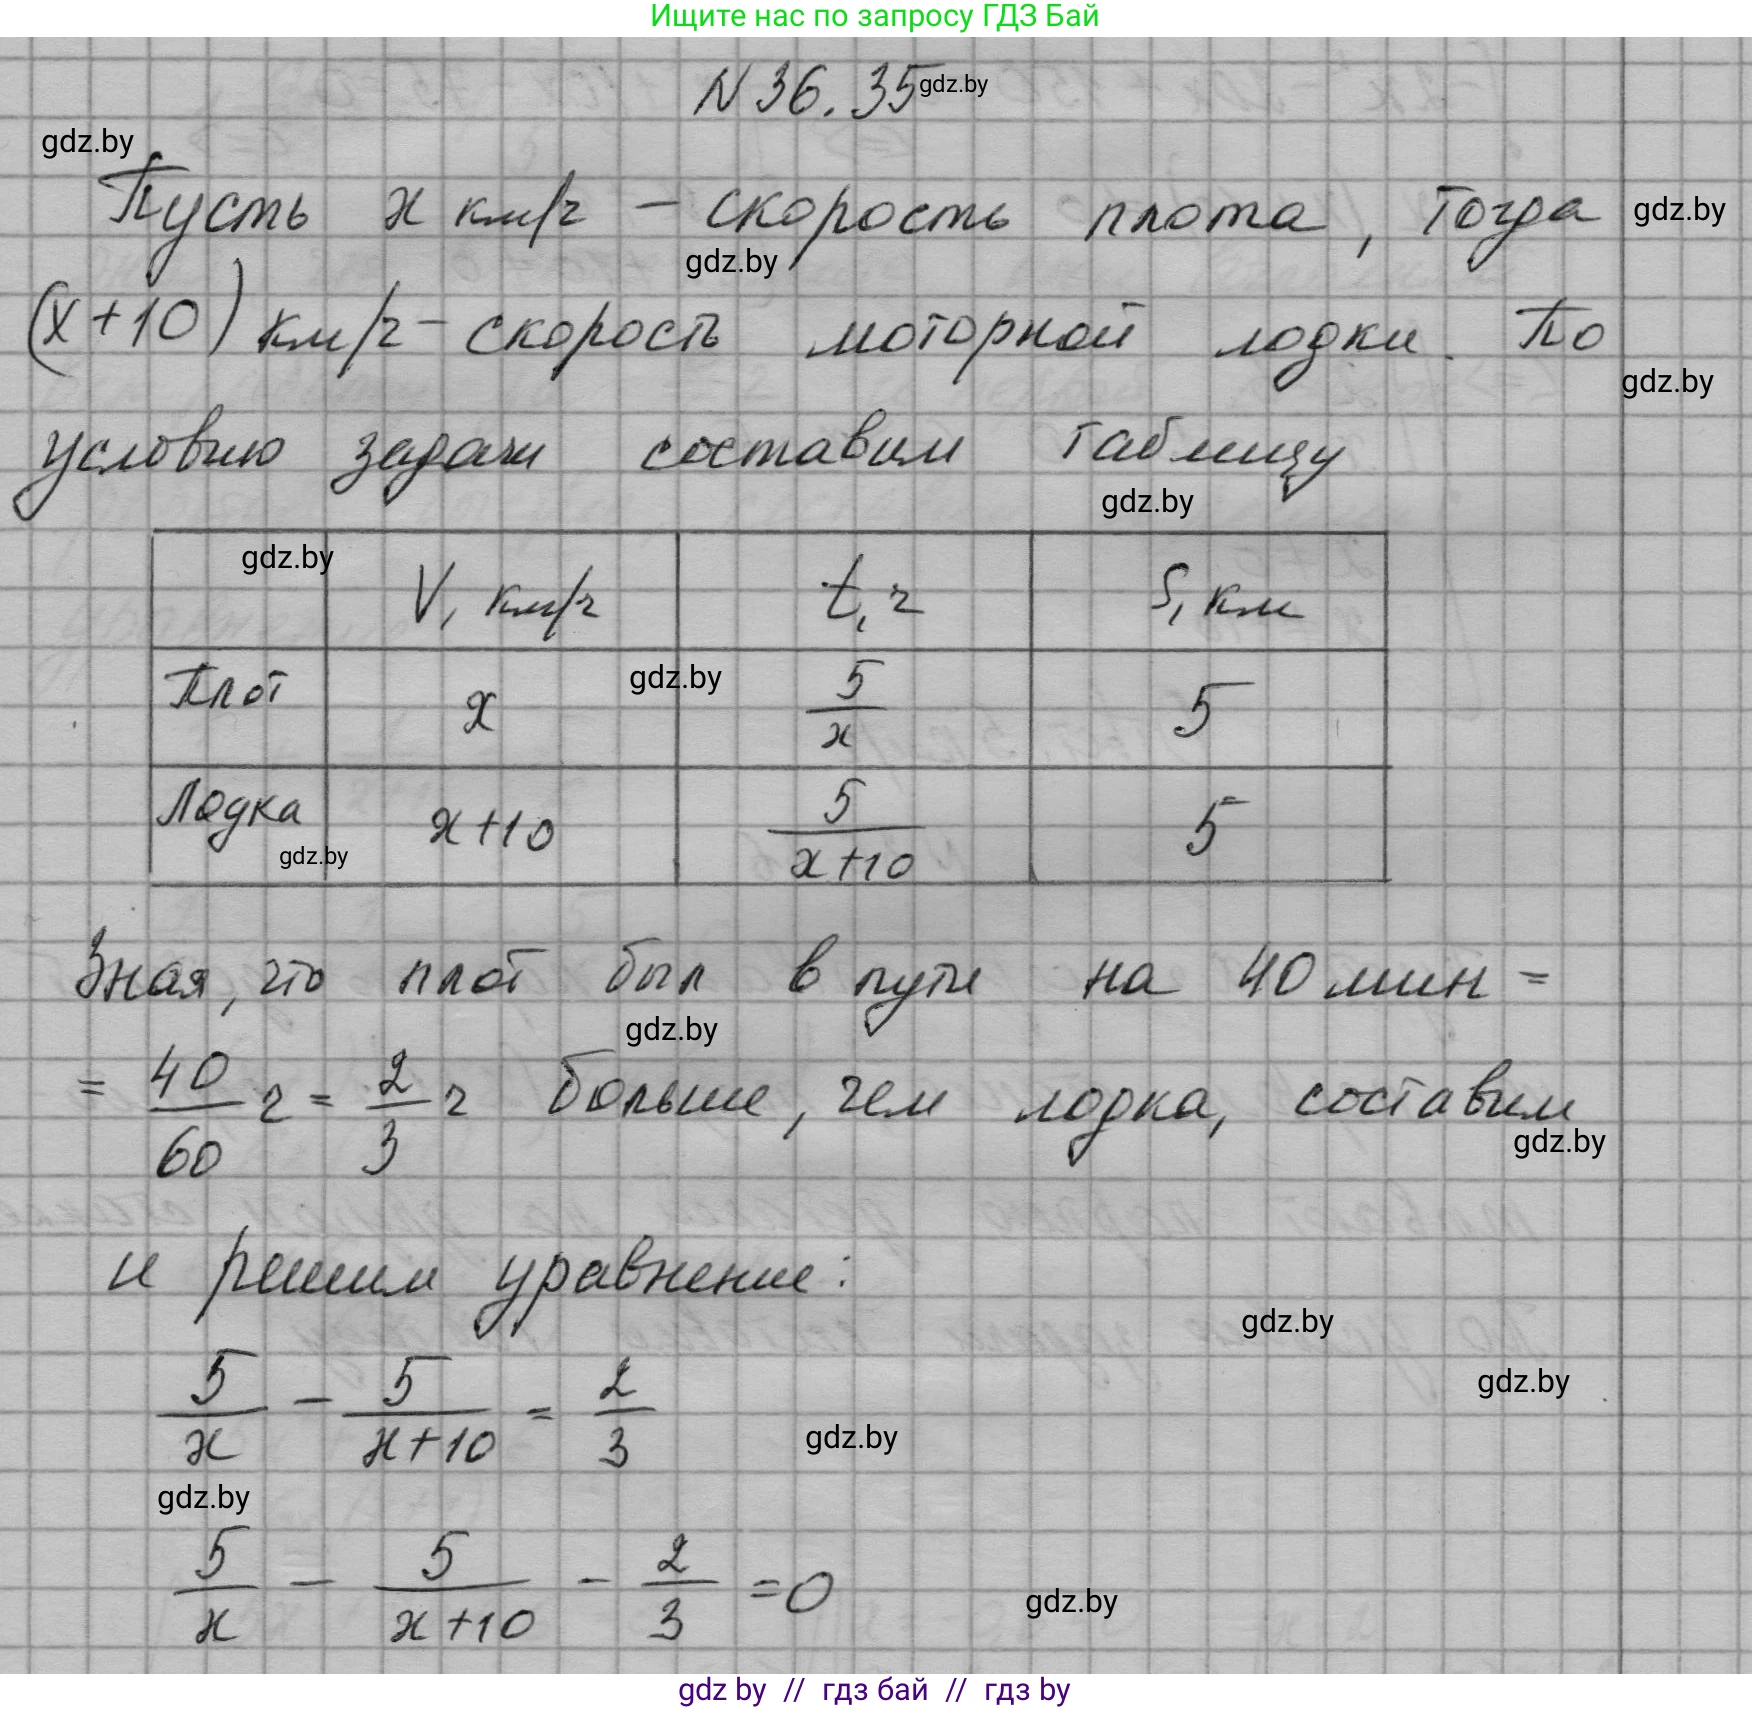 Ищите нас по запросу ГДЗ Бай
N 36.35 gdz.by
gdz.by
Пусть x км/ч - скорость плота, тогда gdz.by
gdz.by
(x+10) км/ч - скорость моторной лодки. По
gdz.by
условию задачи составим таблицу
gdz.by
gdz.by
V, км/ч t, ч S, км
Плот x 5/x 5
gdz.by
Лодка x+10 5/(x+10) 5
gdz.by
Зная, что плот был в пути на 40 мин =
gdz.by
= 40/60 ч = 2/3 ч больше, чем лодка, составим
gdz.by
и решим уравнение:
gdz.by
gdz.by
5/x - 5/(x+10) = 2/3
gdz.by
gdz.by
5/x - 5/(x+10) - 2/3 = 0
gdz.by
gdz by // гдз бай // гдз by